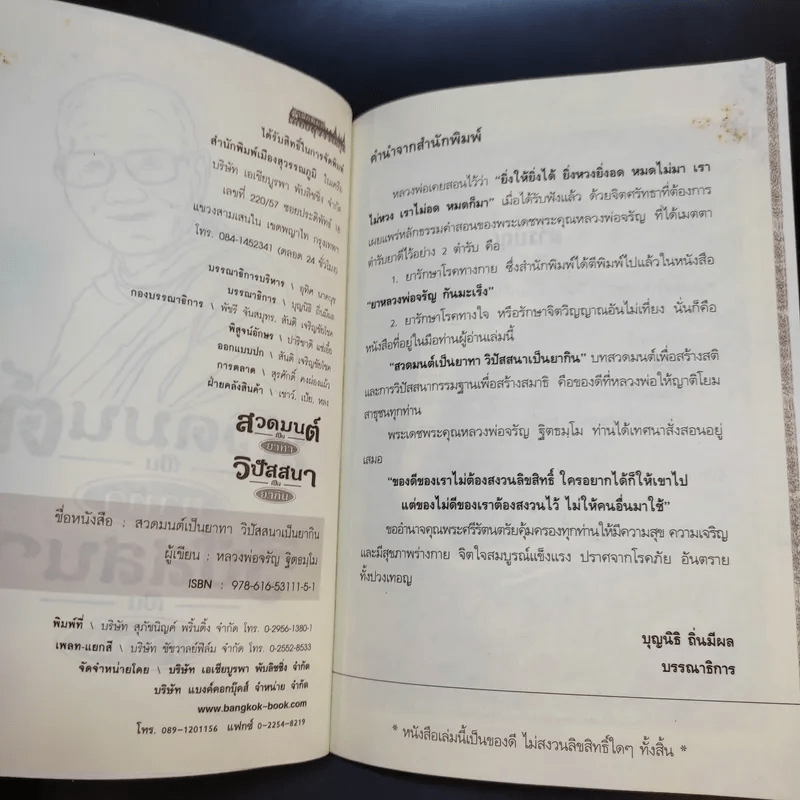 ได้รับสิทธิ์ในการจัดพิมพ์
สำนักพิมพ์เมืองสุวรรณภูมิ ในเครือ
บริษัท เอเชียบูรพา พับลิชชิ่ง จำกัด
เลขที่ 220/57 ซอยประดิพัทธ์ 18
แขวงสามเสนใน เขตพญาไท กรุงเทพฯ
โทร. 084-1452341 (ตลอด 24 ชั่วโมง)
บรรณาธิการบริหาร \ อุทิศ
บรรณาธิการ \ บุญนิธิ ถิ่นมีผล
กองบรรณาธิการ \ พัชรี จันสมุทร. สันติ เจริญชัยโชค
พิสูจน์อักษร \ ปาริชาติ
ออกแบบปก \ สันติ เจริญชัยโชค
การตลาด \ สุรศักดิ์ คงผ่องแผ้ว
ฝ่ายคลังสินค้า \ เชาว์. เป้ย. หลง
สวดมนต์
เป็น
ยาทา
วิปัสสนา
เป็น
ยากิน
ชื่อหนังสือ : สวดมนต์เป็นยาทา วิปัสสนาเป็นยากิน
ผู้เขียน : หลวงพ่อจรัญ ฐิตธมฺโม
ISBN : 978-616-53111-5-1
พิมพ์ที่ \ บริษัท สุภัชนิญค์ พริ้นติ้ง จำกัด โทร. 0-2956-1380-1
เพลท-แยกสี \ บริษัท ชัชวาลย์ฟิล์ม จำกัด โทร. 0-2552-8533
จัดจำหน่ายโดย \ บริษัท เอเชียบูรพา พับลิชชิ่ง จำกัด
บริษัท แบงค์คอกบุ๊คส์ จำหน่าย จำกัด
www.bangkok-book.com
โทร. 089-1201156 แฟกซ์ 0-2254-8219
คำนำจากสำนักพิมพ์
หลวงพ่อเคยสอนไว้ว่า "ยิ่งให้ยิ่งได้ ยิ่งหวงยิ่งอด หมดไม่มา เรา
ไม่หวง เราไม่อด หมดก็มา" เมื่อได้รับฟังแล้ว ด้วยจิตศรัทธาที่ต้องการ
เผยแพร่หลักธรรมคำสอนของพระเดชพระคุณหลวงพ่อจรัญ ที่ได้เมตตา
ตำรับยาดีไว้อย่าง 2 ตำรับ คือ
1. ยารักษาโรคทางกาย ซึ่งสำนักพิมพ์ได้ตีพิมพ์ไปแล้วในหนังสือ
"ยาหลวงพ่อจรัญ กันมะเร็ง"
2. ยารักษาโรคทางใจ หรือรักษาจิตวิญญาณอันไม่เที่ยง นั่นก็คือ
หนังสือที่อยู่ในมือท่านผู้อ่านเล่มนี้
"สวดมนต์เป็นยาทา วิปัสสนาเป็นยากิน" บทสวดมนต์เพื่อสร้างสติ
และการวิปัสสนากรรมฐานเพื่อสร้างสมาธิ คือของดีที่หลวงพ่อให้ญาติโยม
สาธุชนทุกท่าน
พระเดชพระคุณหลวงพ่อจรัญ ฐิตธมฺโม ท่านได้เทศนาสั่งสอนอยู่
เสมอ
"ของดีของเราไม่ต้องสงวนลิขสิทธิ์ ใครอยากได้ก็ให้เขาไป
แต่ของไม่ดีของเราต้องสงวนไว้ ไม่ให้คนอื่นมาใช้"
ขออำนาจคุณพระศรีรัตนตรัยคุ้มครองทุกท่านให้มีความสุข ความเจริญ
และมีสุขภาพร่างกาย จิตใจสมบูรณ์แข็งแรง ปราศจากโรคภัย อันตราย
ทั้งปวงเทอญ
บุญนิธิ ถิ่นมีผล
บรรณาธิการ
* หนังสือเล่มนี้เป็นของดี ไม่สงวนลิขสิทธิ์ใดๆ ทั้งสิ้น *